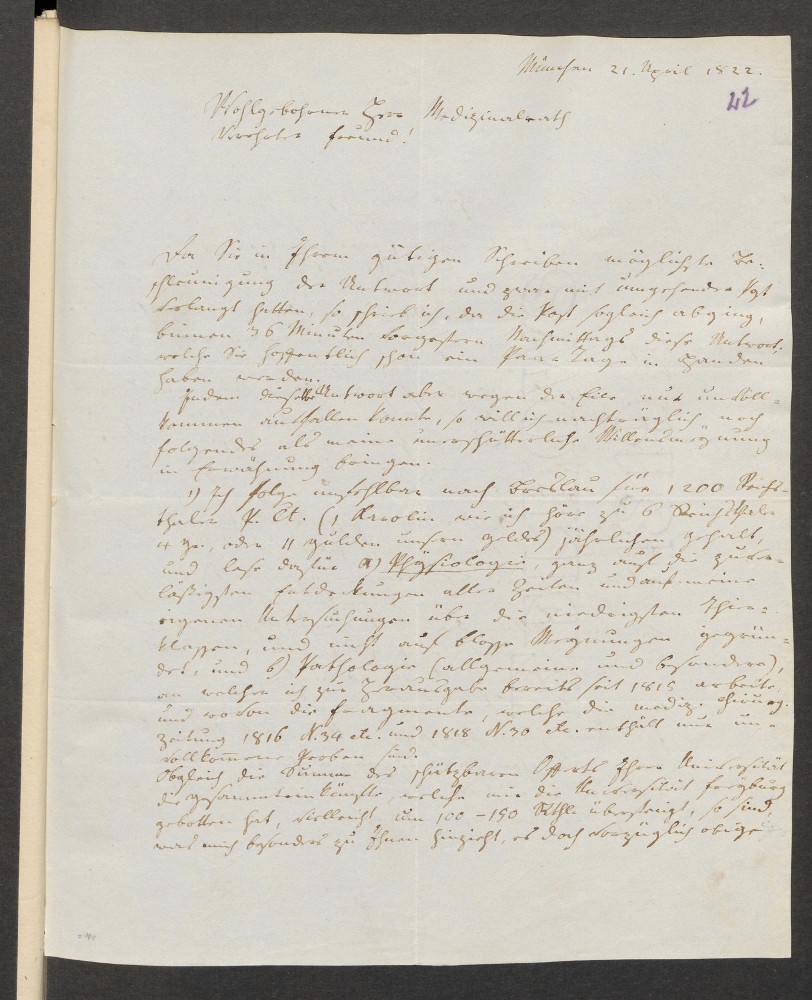 München 21. April 1822.
42
Wohlgebohrner Herr Medizinalrath
Verehrter Freund!
Da Sie in Ihrem gütigen Schreiben möglichste Be-
schleunigung der Antwort und zwar mit umgehender Post
verlangt hatten, so schrieb ich, da die Post sogleich abging,
binnen 36 Minuten vorgestern Nachmittags diese Antwort,
welche Sie hoffentlich schon ein Paar Tage in Handen
haben werden.
Indem dieselbe Antwort aber wegen der Eile nur unvoll-
kommen ausfallen konnte, so will ich nachträglich noch
folgendes als meine unerschütterliche Willensmeynung
in Erwähnung bringen.
1) Ich folge unfehlbar nach Breslau für 1200 Reichs-
thaler P. Ct. (1 Karolin wie ich höre zu 6 Reichsthaler
4 gr., oder 11 Gulden unsern Geldes) jährlichen Gehalt,
und lese dafür a) Physiologie, ganz auf die zuver-
läßigsten Entdeckungen aller Zeiten und auf meine
eigenen Untersuchungen über die niedrigsten Thier-
klassen, und nicht auf blosse Meynungen gegrün-
det, und b) Pathologie (allgemeine und besondere),
an welcher ich zur Herausgabe bereits seit 1815 arbeite,
und wovon die Fragmente, welche die mediz. chirurg.
Zeitung 1816 N. 34 etc. und 1818 N. 30 etc. enthält nur un-
vollkommene Proben sind.
Obgleich die Summe des schätzbaren Offerts Ihrer Universität
die gesammteinkünfte, welche mir die Universität Freyburg
gebotten hat, vielleicht um 100-150 Rthlr übersteigt, so sind,
was mich besonders zu Ihnen hinzieht, es doch vorzüglich obige